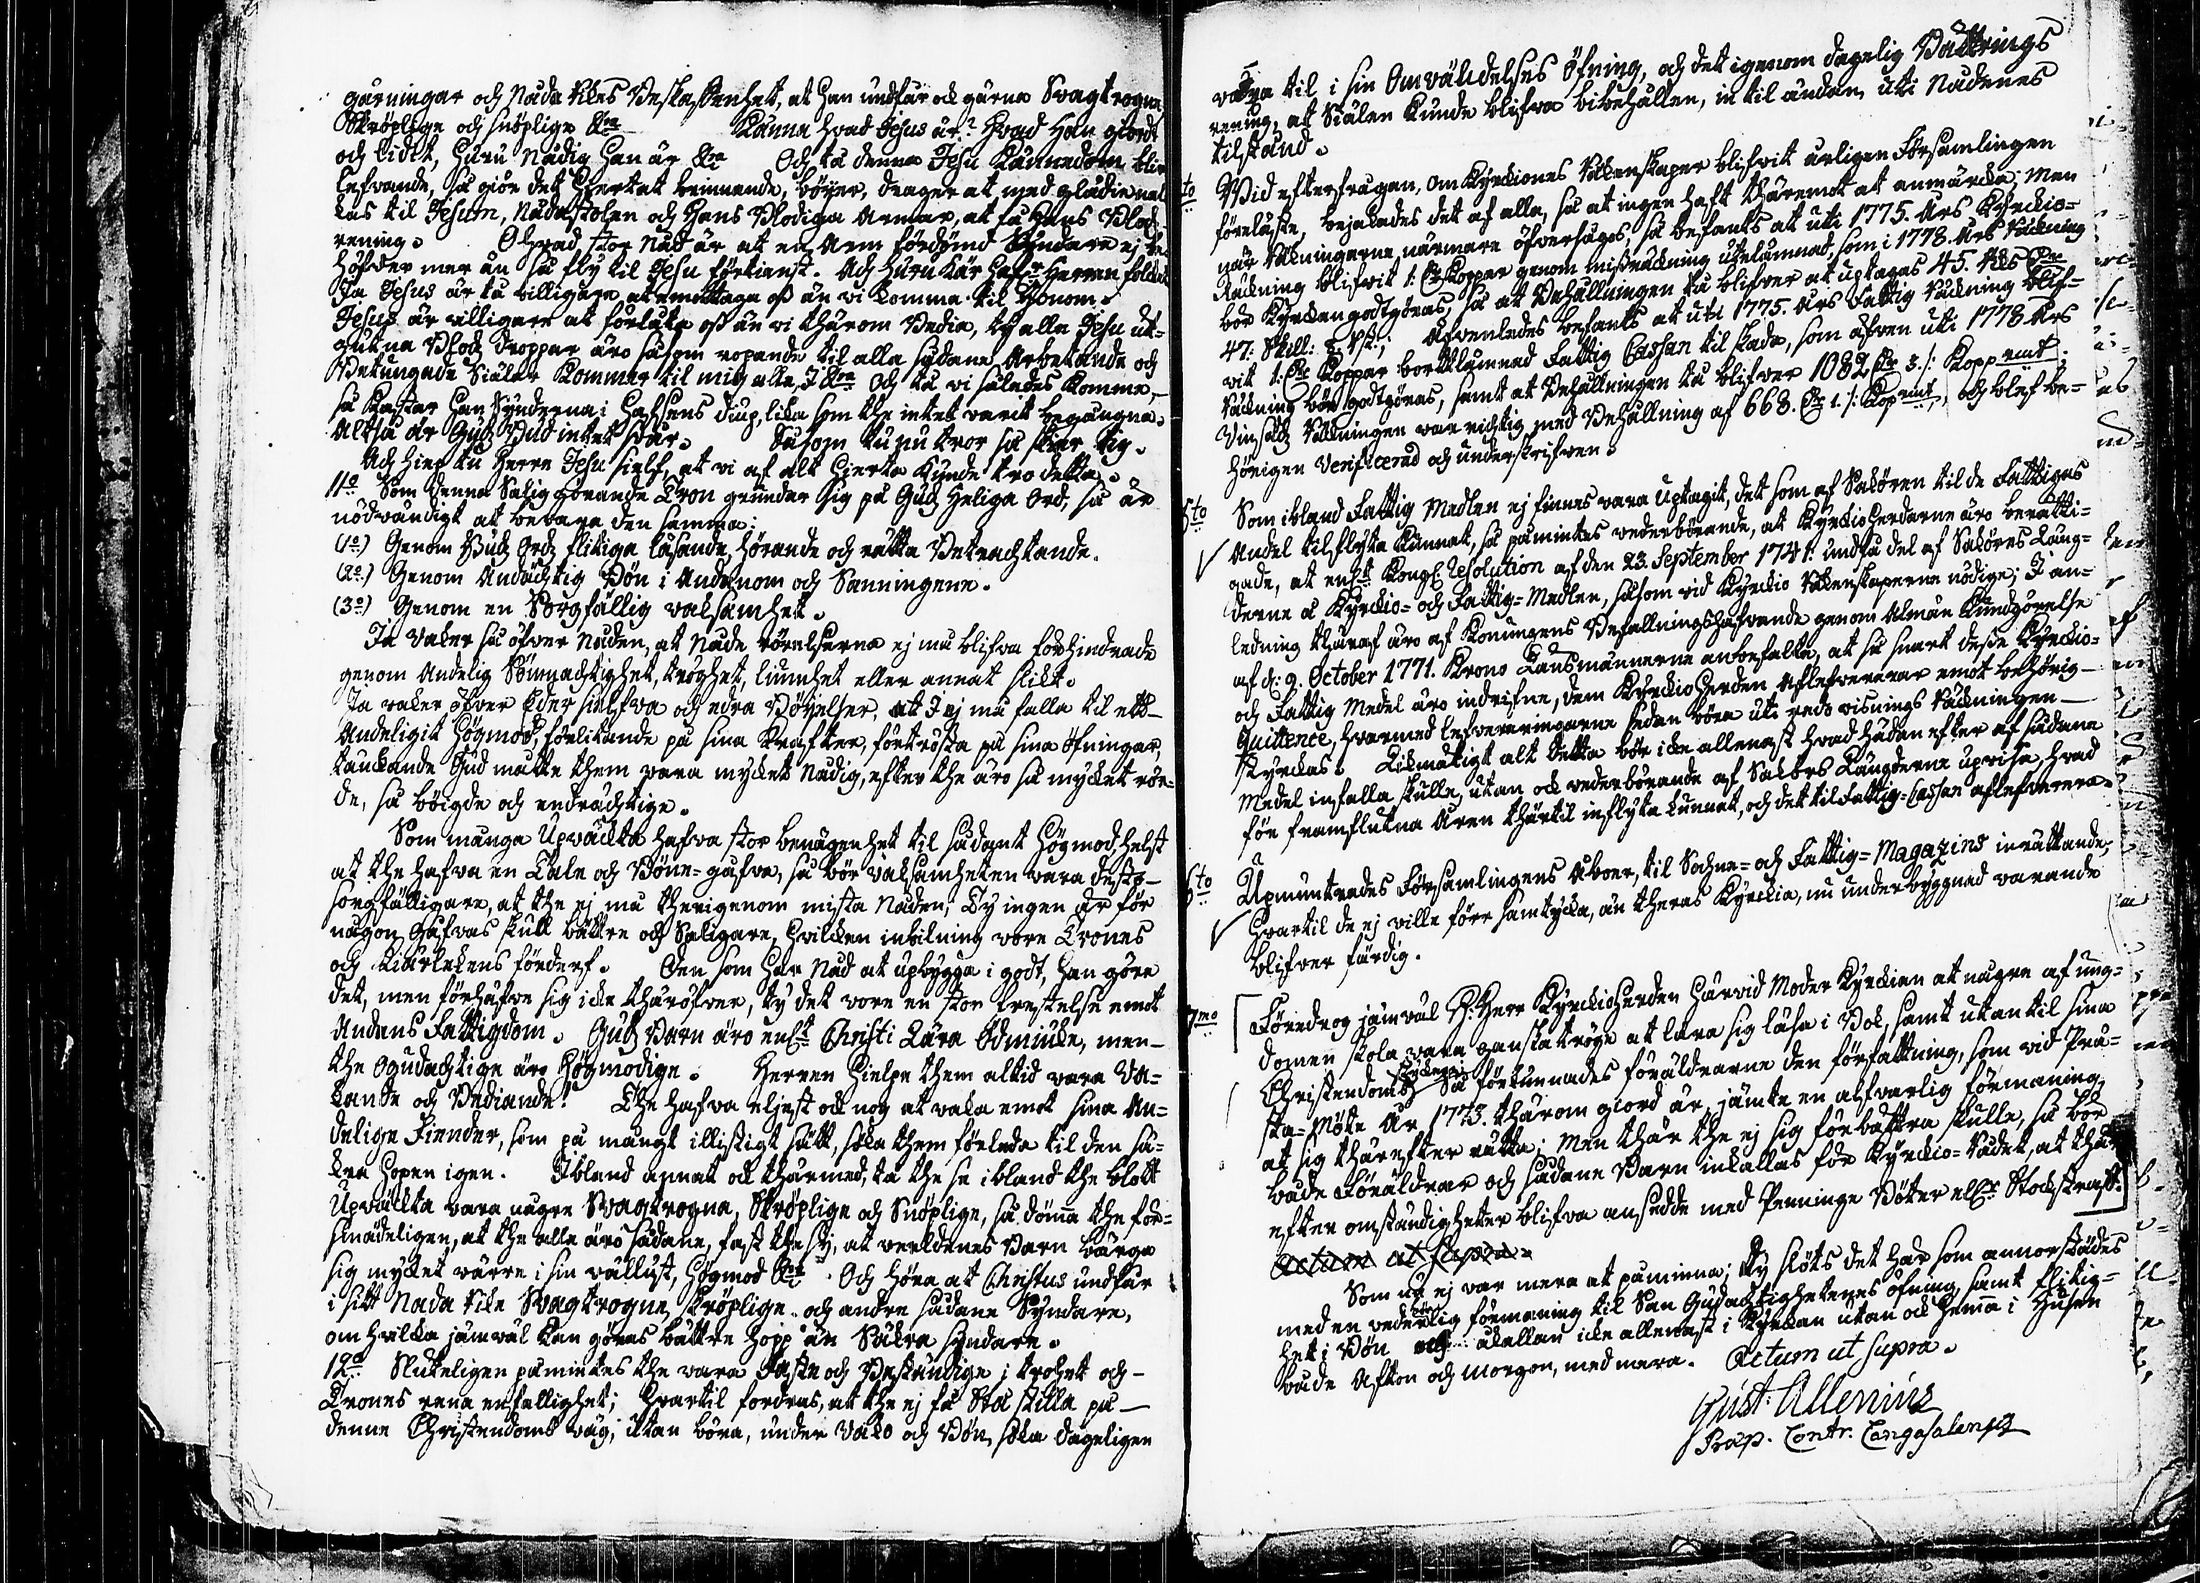 gärningar och Nåda Rikes Beskaffenhet, at han undfår ock gärna Svagtrogna
Skröplige och snöplige &ra Känna hvad Jesus är? Hvad Han giordt
och lidit, huru Nådig han är &ra Och tå denna Jesu Kännedom blir
lefvande, så giör det Hiertat brinnande, böyer, drager at med glädie nal-
kas til Jesum, Nådastolen och Hans Blodiga Armar, at få Hans Blods
rening. O hvad stor Nåd är at en Arm fördömd Syndare ej be-
höfver mer än så fly til Jesu förtienst. Ach huru Kär hafr Herren folcket
Ja Jesus är tå villigare at emottaga oss än vi komma til Honom.
Jesus är villigare at förlåta oss än vi thärom Bedia, ty alla Jesu ut-
gutna Blods droppar äro såsom ropande til alla sådane Arbetande och
Betungade Siälar Kommer til mig alle J &ra Och tå vi således komme,
så kastar Han Synderna i Hafsens diup, lika som the intet varit begångna.
Altså är Guds Bud intet svår. Såsom tu nu tror så skier tig.
Ach hielp tu Herre Jesu sielf, at vi af alt Hierta kunde tro detta.
11o Som denna Saliggörande Tron grundar sig på Guds Heliga Ord, så är
nödvändigt at bevara den samma:
(1o) Genom Guds Ords flitiga läsande, hörande och rätta Betrachtande.
(2o) Genom Andächtig Bön i Andanom och Sanningene.
(3o) Genom en Sorgfällig vaksamhet.
Ja vaker så öfver Nåden, at Nåde rörelserna ej må blifva förhindrade
genom Andelig Sömnachtighet, tröghet, liumhet eller annat slikt.
Ja vaker öfver Eder sielfva och edra Böyelser, at J ej må falla til ett
Andeligit Högmod, förlitande på sina Krafter, förtrösta på sina öfningar,
tänckande Gud måtte them vara mycket Nådig, efter the äro så mycket rör-
de, så böigde och endrächtige.
Som många Upväckta hafva stor benägenhet til sådant Högmod, helst
at the hafva en Tale och Böne-gåfva, så bör vaksamheten vara desto
sorgfälligare, at the ej må therigenom mista Nåden; Ty ingen är för
någon Gåfvas skull bättre och Saligare, hvilcken inbilning vore Trones
och Kiärlekens förderf. Den som har Nåd at upbygga i godt, han göre
det, men förhäfve sig icke thäröfver, ty det vore en stor frestelse emot
Andans Fattigdom. Guds Barn äro enlt Christi Lära Ödmiuke, men
the Ogudachtige äro Högmodige. Herren hielpe them altid vara Va-
kande och Bediande! The hafva eljest ock nog at vaka emot sina An-
delige Fiender, som på mångt illistigt sätt, söka them förleda til den så-
kra hopen igen. Ibland annat ock thärmed, tå the se ibland the blott
Upväckta vara någre Svagtrogna, Skröplige och Snöplige, så döma the för-
smädeligen, at the alle äro sådane, fast the sij, at verldenes Barn bärga
sig mycket värre i sin vällust, Högmod &ra. Och höra at Christus undfår
i sitt Nåda Rike Svagtrogne, skröplige och andre sådane Syndare,
om hvilka jämväl kan göras bättre hopp än Säkra syndare.
12o Sluteligen påmintes the vara Faste och Beständige i trohet och
Trones rena enfallighet; Hvartil fordras, at the ej få Stå stilla på
denne Christendoms väg, utan böra, under Vako och Bön, söka dageligen
växa til i sin Omvändelses Öfning, och det igenom dagelig Bättrings
rening, at Siälen kunde blifva bibehållen, in til ändan, uti Nådenes
tilstånd.
4to Wid efterfrågan, om Kyrckiones Räkenskaper blifvit årligen Församlingen
föreläste, bejakades det af alla, så at ingen haft thäremot at anmärcka; Men
när Räkningarne närmare öfversågos, så befants at uti 1775. Års Kyrckio-
Räckning blifvit 1. Dr Koppar genom missräckning utelämnad, som i 1778. Års Räckning
bör Kyrckan godtgöras, så at Behållningen tå blifver at uptagas 45. Rds Dr
47: Skill: 8. Rst.; Äfvenledes befants at uti 1775. Års Fattig Räckning blif-
vit 1. Dr Koppar bortlämnad Fattig Cassan til skada, som äfven uti 1778 Års
Räckning bör godtgöras, samt at Behållningen tå blifver 1082 Dr 3./: Koppmt.
Vinsäds Räkningen var richtig med Behållning af 668. Dr 1./: Kopmt., och blef be-
hörigen Verificerad och underskrifven.
5to Som ibland Fattig Medlen ej finnes vara uptagit, det som af Sakören til de Fattigas
Andel tilflyta kunnat, så påmintes vederbörande, at Kyrckioherdarne äro berätti-
gade, at enlt Kongl Resolution af den 23. September 1741: undfå del af Saköres Läng-
derne å Kyrckio- och Fattig-Medlen, såsom vid Kyrckio Räkenskaperne nödige; J an-
ledning thäraf äro af Konungens Befallningshafvande genom Almän Kundgörelse
af d: 9. October 1771. Krono Länsmännerne anbefalte, at så snart desse Kyrckio-
och Fattig Medel äro indrifne, dem Kyrckio Herden aflefvererar emot behörig
Quittence, hvarmed lefvereringarne sedan böra uti redovisnings Räckningen
styrckas. Likmätigt alt detta bör icke allenast hvad hädanefter af sådane
Medel infalla skulle, utan ock vederbörande af Saköres Längderne upvisa hvad
för framflutna Åren thärtil inflyta kunnat, och det til Fattig-Cassan aflefverera.
6to Upmuntrades Församlingens Åboer, til Sochne- och Fattig-Magazins inrättande;
Hvartil de ej ville förr samtycka, än theras Kyrckia, nu underbyggnad varande
blifver färdig.
7mo Föredrog jämväl H: Herr Kyrckioherden härvid Moder Kyrckian at någre af ung-
domen skola vara ganska tröge at lära sig läsa i Bok, samt utantil sina
Christendoms stycken; Så förkunnades föräldrarne den författning, som vid Prå-
sta-Möte År 1773. thärom giord är, jämte en alfvarlig förmaning,
at sig thärefter rätta; Men thär the ej sig förbättra skulle, så bör
både Föräldrar och sådane Barn inkallas för Kyrckio-Rådet, at thär
efter omständigheter blifva ansedde med Penninge Böter eller Stockstraff.
Actum ut supra.
Som nu ej var mera at påminna; Ty slöts det här som annorstädes
med en vederbörlig förmaning til San Gudachtighetenes öfning, samt flitig-
het i Bön och åkallan icke allenast i Kyrckan utan ock hemma i Husen
både Afton och morgon, med mera. Actum ut supra.
Gust: Allenius
Præp. Contr. Cangasalensis